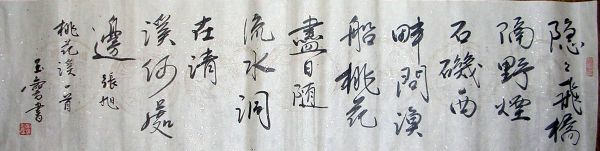 隐々飛橋
隔野煙
石磯西
畔問漁
船桃花
盡日随
流水洞
在清
溪何處
邊 張旭
桃花溪一首
書